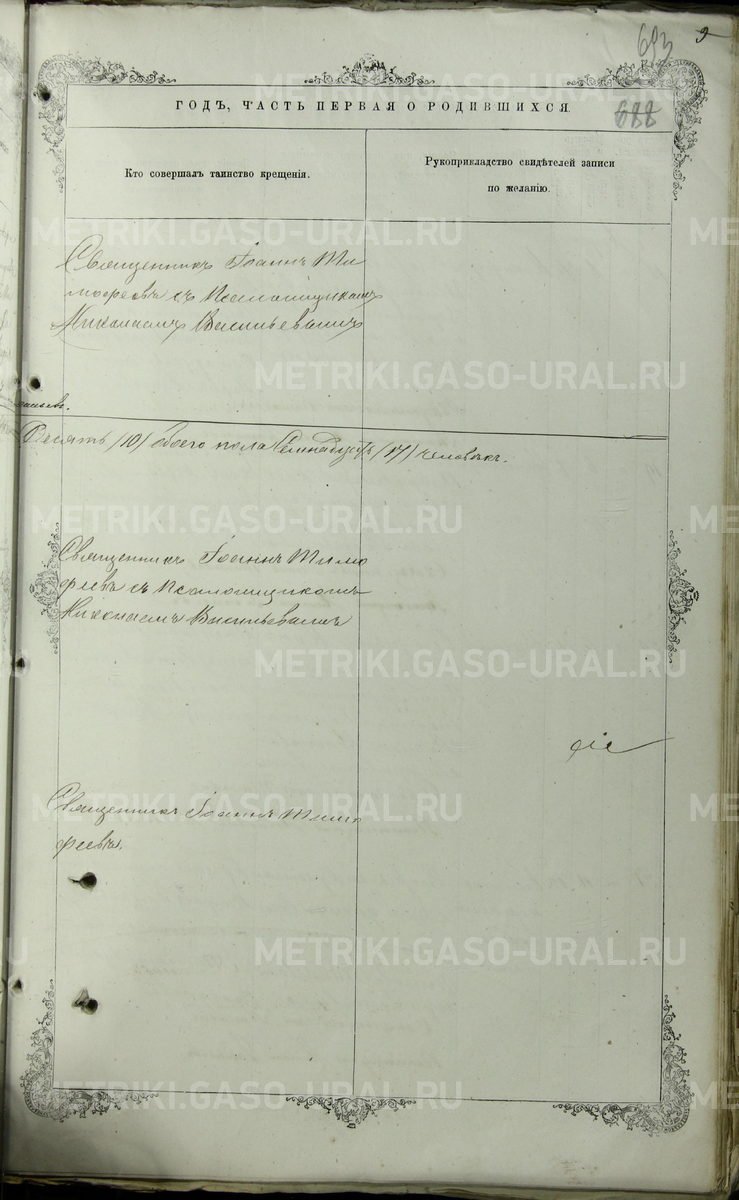 693
9
ГОДЪ, ЧАСТЬ ПЕРВАЯ О РОДИВШИХСЯ.
688
Кто совершалъ таинство крещенія.
Рукоприкладство свидѣтелей записи
по желанію.
Священникъ Іоаннъ Ти
мофеевъ съ Псаломщикомъ
Николаемъ Васильевымъ
Десять /10/ обоего пола Семнадцать /17/ человѣкъ.
Священникъ Іоаннъ Тимо
феевъ съ Псаломщикомъ
Николаемъ Васильевымъ
Священникъ Іоаннъ Тимо
феевъ.
METRIKI.GASO-URAL.RU